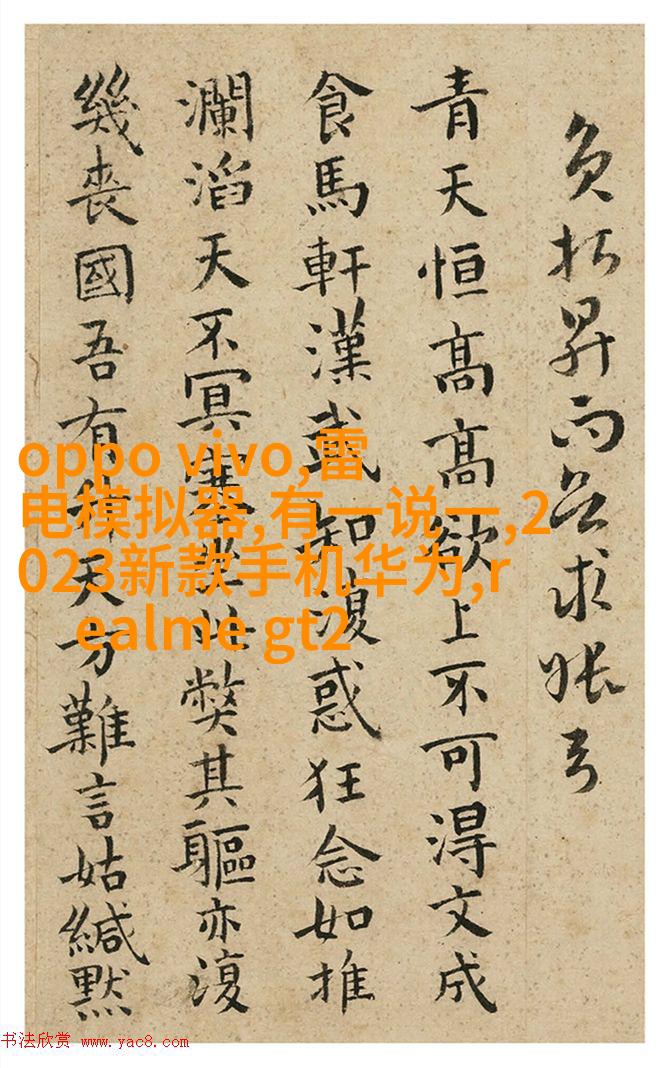 負昇而求
青天恒高高欲上不可得文成
食馬軒漢武知復惑狂念如推
瀾滔天不冥此弊其軀亦復
幾喪國吾有天方難言姑緘默
oppo vivo,雷
电模拟器,有一说一,2
023新款手机华为,r
ealme gt2
书法欣赏 www.yac8.com